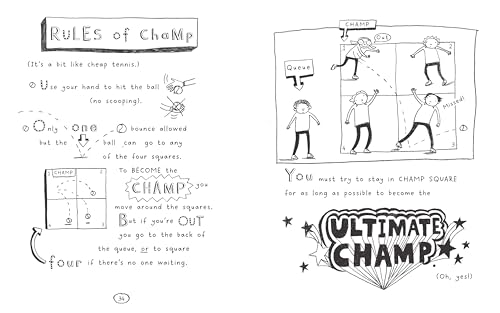 RULES of ChaMp
(It's a bit like cheap tennis.)
Use your hand to hit the ball
(no scooping).
Only one bounce allowed
but the ball can go to any
of the four squares.
To BECOME the
CHAMP you
move around the squares.
But if you're OUT
you go to the back of
the queue, or to square
four if there's no one waiting.
CHAMP
34
CHAMP
Out
Queue
Missed!
You must try to stay in CHAMP SQUARE
for as long as possible to become the
ULTIMATE
CHAMP
(Oh, yes!)